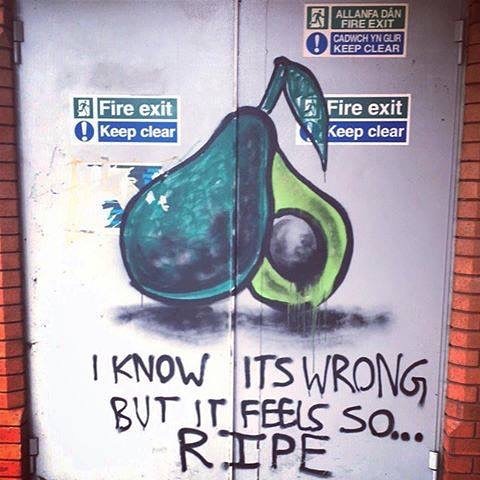 ALLANFA DÂN
FIRE EXIT
CADWCH YN GLIR
KEEP CLEAR
Fire exit
Keep clear
Fire exit
Keep clear
I KNOW ITS WRONG
BUT IT FEELS SO...
R.IPE